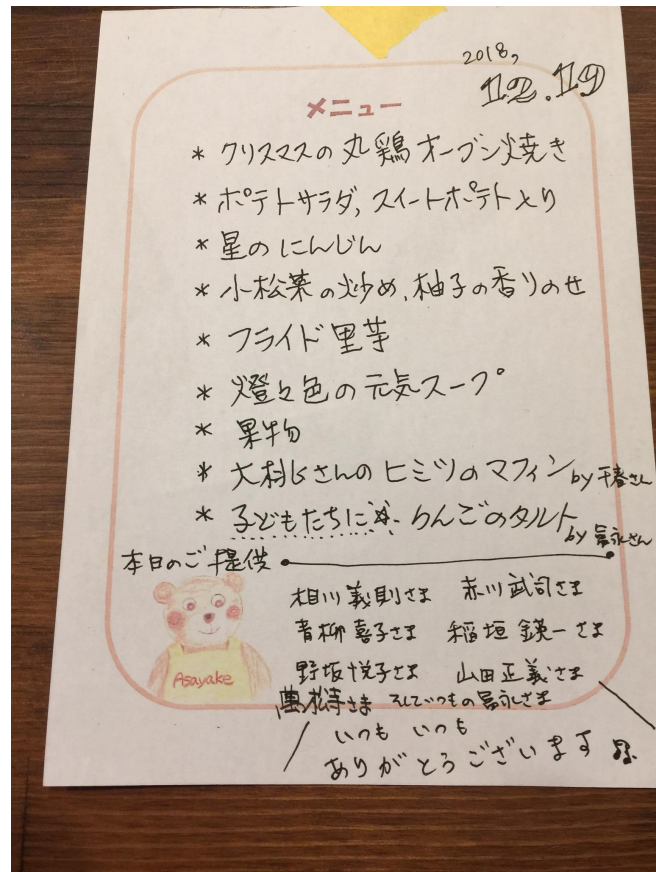 2018,
12.19
メニュー
* クリスマスの丸鶏オーブン焼き
* ポテトサラダ, スイートポテトとり
* 星のにんじん
* 小松菜の炒め, 柚子の香りのせ
* フライド里芋
* 燈々色の元気スープ
* 果物
* 大村Gさんのヒミツのマフィン by 千春さん
* 子どもたちに☆ りんごのタルト by 冨永さん
本日のご提供
相川義則さま 赤川武司さま
青柳喜子さま 稲垣鍈一さま
野坂悦子さま 山田正義さま
萬松寺さま そしていつもの冨永さま
いつも いつも
ありがとうございます
Asayake